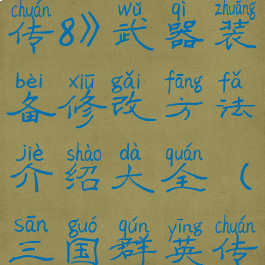 chuán wǔ qì zhuāng
传8》武器装
bèi xiū gǎi fāng fǎ
备修改方法
jiè shào dà quán
介绍大全（
sān guó qún yīng chuán
三国群英传